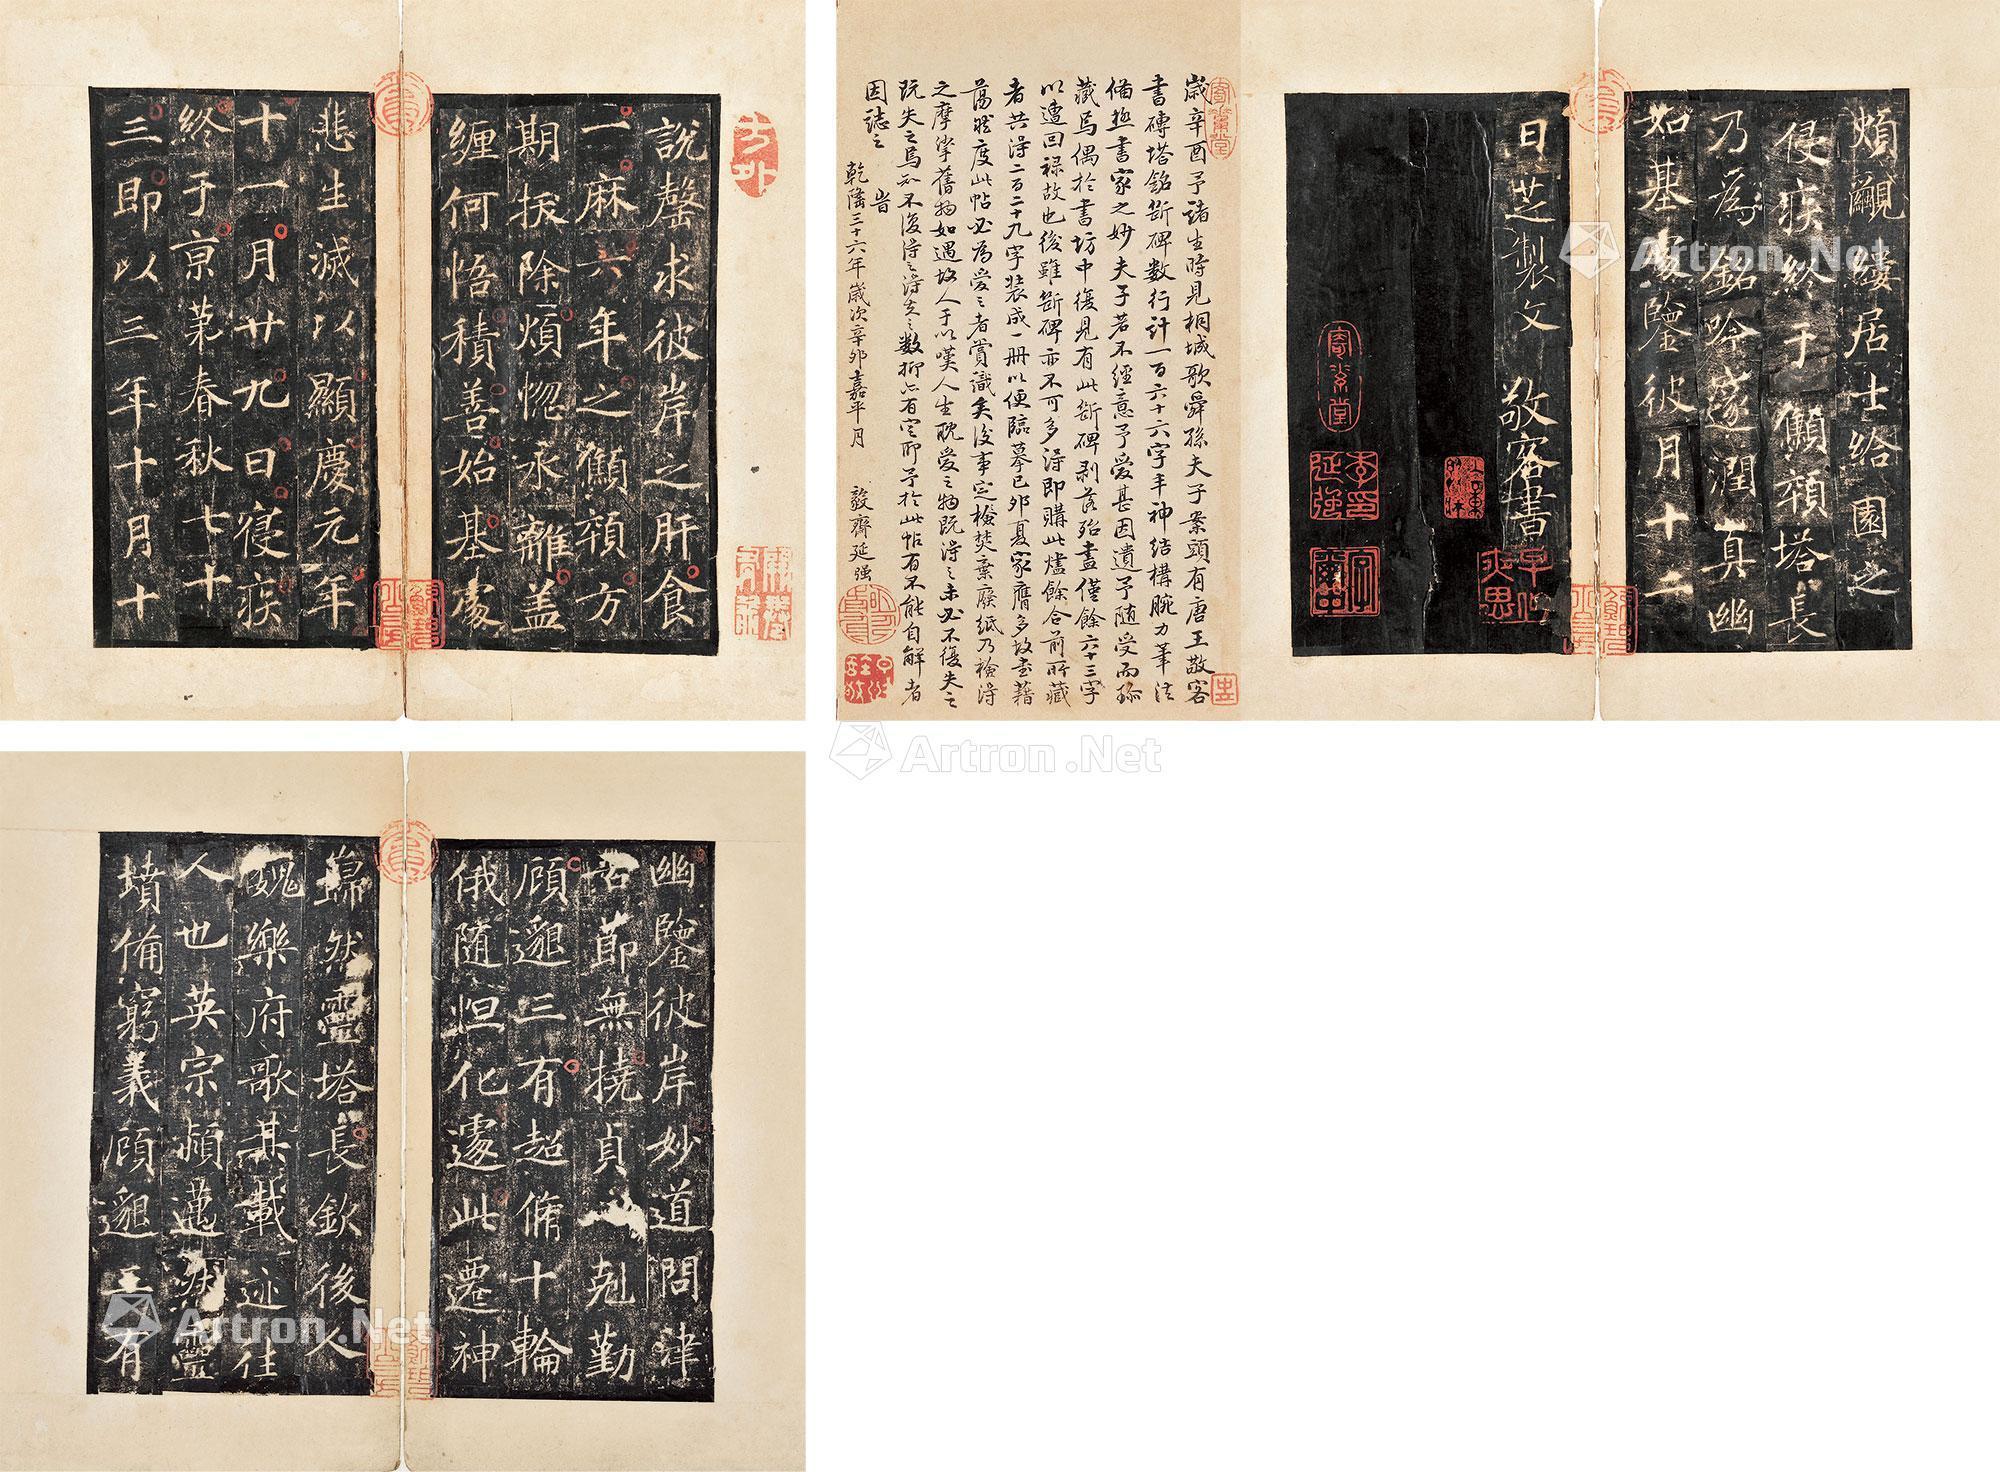 說罄求彼岸之肝食
一麻六年之懶頛方
期授除煩惚永離蓋
纏何悟積善始基處
悲生滅以顯慶元年
十一月廿九日寑疾
終于京苐春秋七十
三即以三年十月十
煩覼縷居士給園之
侵疾終于懶頛塔長
乃為銘吟邃潤真幽
如基處鑒彼月十二
日芝製文 敬客書
歲辛酉予諸生時見桐城歌舜孫夫子案頭有唐王敬客
書磚塔銘斷碑数行計一百六十六字丰神結構腕力筆法
備極書家之妙夫子若不經意予愛甚因遺予隨受而珎
藏焉偶於書坊中復見有此斷碑剥落殆盡僅餘六十三字
以遭回祿故也後雖斷碑亦不可多得即購此爐餘合前所藏
者共得二百二十九字装成一冊以便臨摹己卯夏家膺多故書藉
蕩然度此帖必為愛之者賞識矣後事定檢焚棄廢紙乃檢得
之摩挲舊物如遇故人于以嘆人生耽愛之物既得之未必不復失之
既失之焉知不復得之得失之數抑亦有定耶予於此帖有不能自解者
因誌之 旹
乾隆三十六年歲次辛卯嘉平月 毅齊延强
幽鑒彼岸妙道問津
苦節無撓貞 剋勤
頋邈三有超脩十輪
俄随怛化遽此遷神
歸然靈塔長欽後人
媿樂府歌其載迹住
人也英宗頻邁 靈
墳備窮義頋邈三有
Artron.Net
Artron.Net
Artron.Net